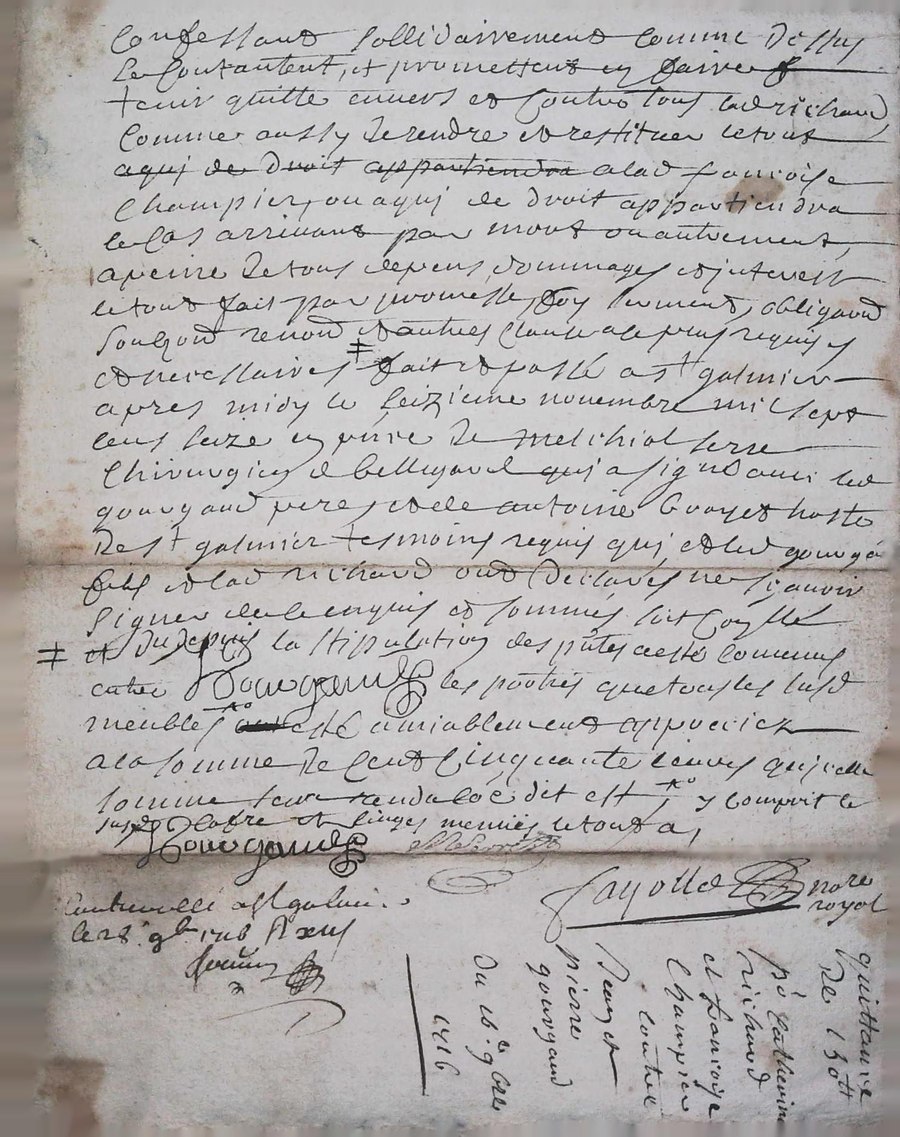 Confessant sollidairement comme dessus
le contantent, et promettent en faire
tenir quitte envers et contre tous lad richard
comme aussy de rendre et restituer le tout
a qui de droit appartiendra a lad francoise
Champier, ou a qui de droit appartiendra
le cas arrivant par mort ou autrement,
a peine de tous depens, dommages et interest
le tout fait par promesse, foy serment, obligaond
soubzond renond et autres clauses de plus requises
et necessaires ‡ fait et passé a st galmier
apres midy le seizieme novembre mil sept
cens seize en pnce de melchiol serre
Chirurgien de bellegard qui a signé avec led
gourgaud pere et de antoine hoste
de st galmier tesmoins requis qui et led gourga
fils et lad richard ont declarés ne sçavoir
signer de ce enquis et sommés soit
‡ et du depuis la stipulation des pntes a esté convenu
entre Gourgaud les parties que tous les susd
meubles ont esté amiablement appreciez
a la somme de Cent Cinquante livres qui celle
somme dit est, y comprit le
susd coffre et linges menuës le tout a,
Gourgaud
fayolle nore
royal
Controuellé a st galmier
le 28e 9bre 1716 R
quittance
de 150tt
pr Catherine
richard
et francoise
Champier
contre
Jean et
pierre
gourgaud
du 16e 9bre
1716